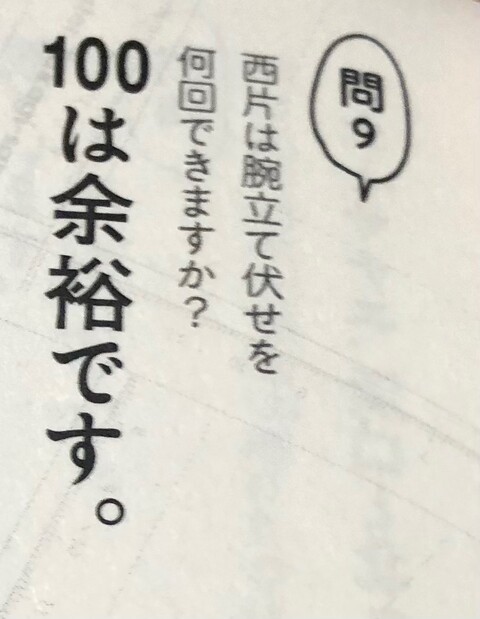 問9
西片は腕立て伏せを
何回できますか?
100は余裕です。